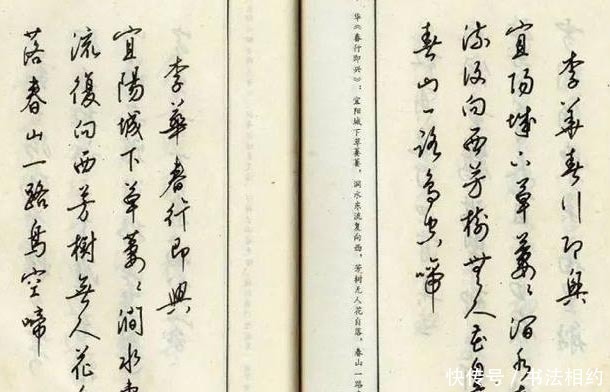 李華春行即興
宜陽城下草萋〻澗水
流復向西芳樹無人花自
春山一路鳥空啼
华《春行即兴》：宜阳城下草萋萋，涧水东流复向西，芳树无人花自落，春山一路
李華春行即興
宜陽城下草萋〻澗水東
流復向西芳樹無人花
落春山一路鳥空啼
快传号／书法相约